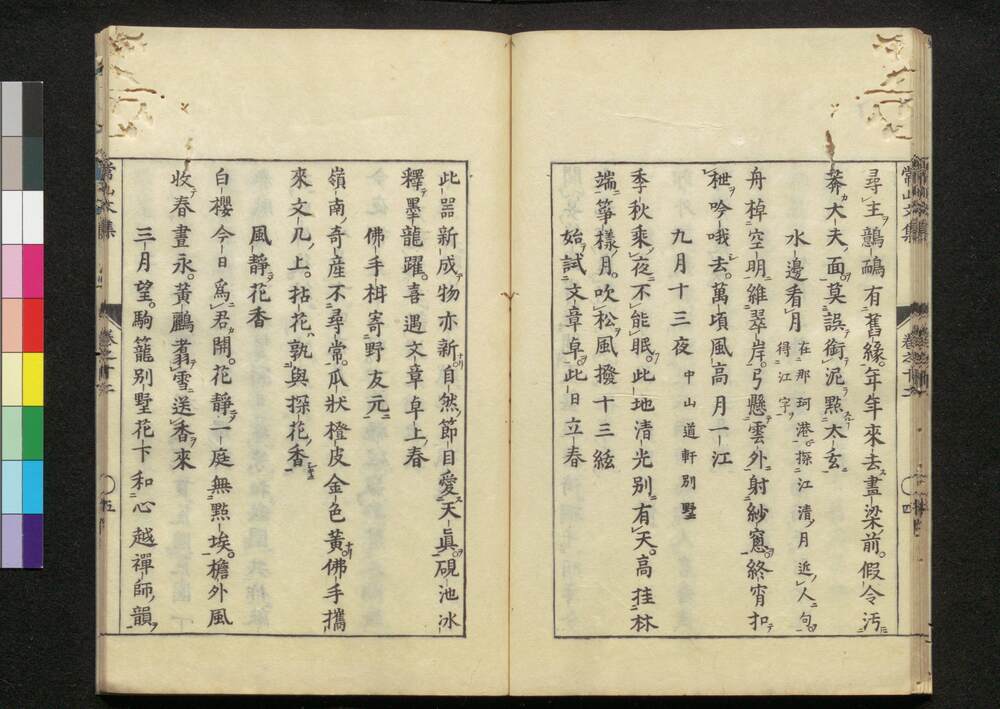 尋主鷓鴣有舊緣年年來去畫梁前假令汚
莾大夫面莫誤銜泥㸃太玄
水邊看月 在那珂港探江清月近人句
得江字
舟棹空明維翠岸弓懸雲外射紗窓終宵扣
枻吟哦去萬頃風高月一江
九月十三夜 中山道軒別墅
季秋乘夜不能眠此地清光別有天高挂林
端箏樣月吹松風撥十三絃
始試文章卓此日立春
此噐新成物亦新自然節目愛天眞硯池冰
釋墨龍躍喜遇文章卓上春
佛手柑寄野友元
嶺南奇産不尋常瓜狀橙皮金色黃佛手攜
來文几上拈花孰與探花香
風靜花香
白櫻今日爲君開花靜一庭無㸃埃檐外風
收春晝永黃鸝翥雪送香來
三月望駒籠別墅花下和心越禪師韻
常山文集
卷之十六